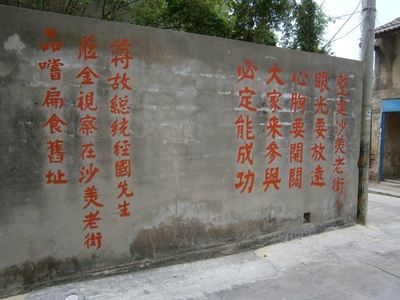 整建沙美老街
眼光要放遠
心胸要開闊
大家来參與
必定能成功
蔣故總統經國先生
莅金視察在沙美老街
品嚐扁食舊址